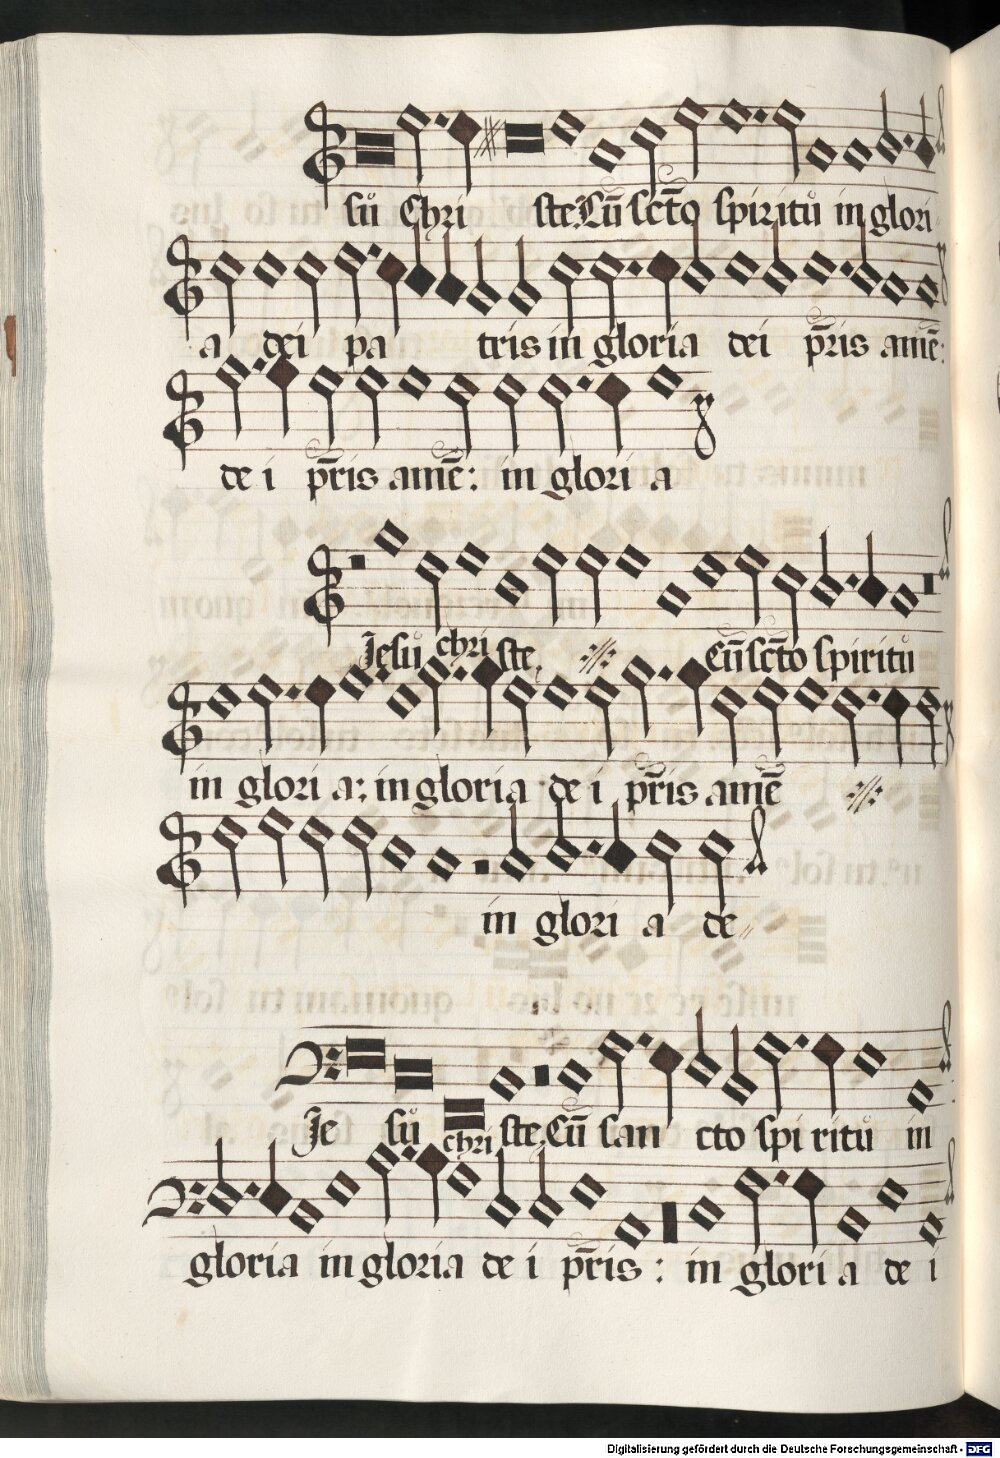 sů Chri ste: Cū sc̄to spiritů in glori
a dei pa tris in gloria dei pr̄is amē:
de i pr̄is amē: in glori a
Jesů chri ste, ·//· Cū sc̄to spiritů
in glori a: in gloria de i pr̄is amē ·//·
in glori a de
Je sů chri ste, Cū san cto spi ritů in
gloria in gloria de i pr̄is: in glori a de i
Digitalisierung gefördert durch die Deutsche Forschungsgemeinschaft - DFG